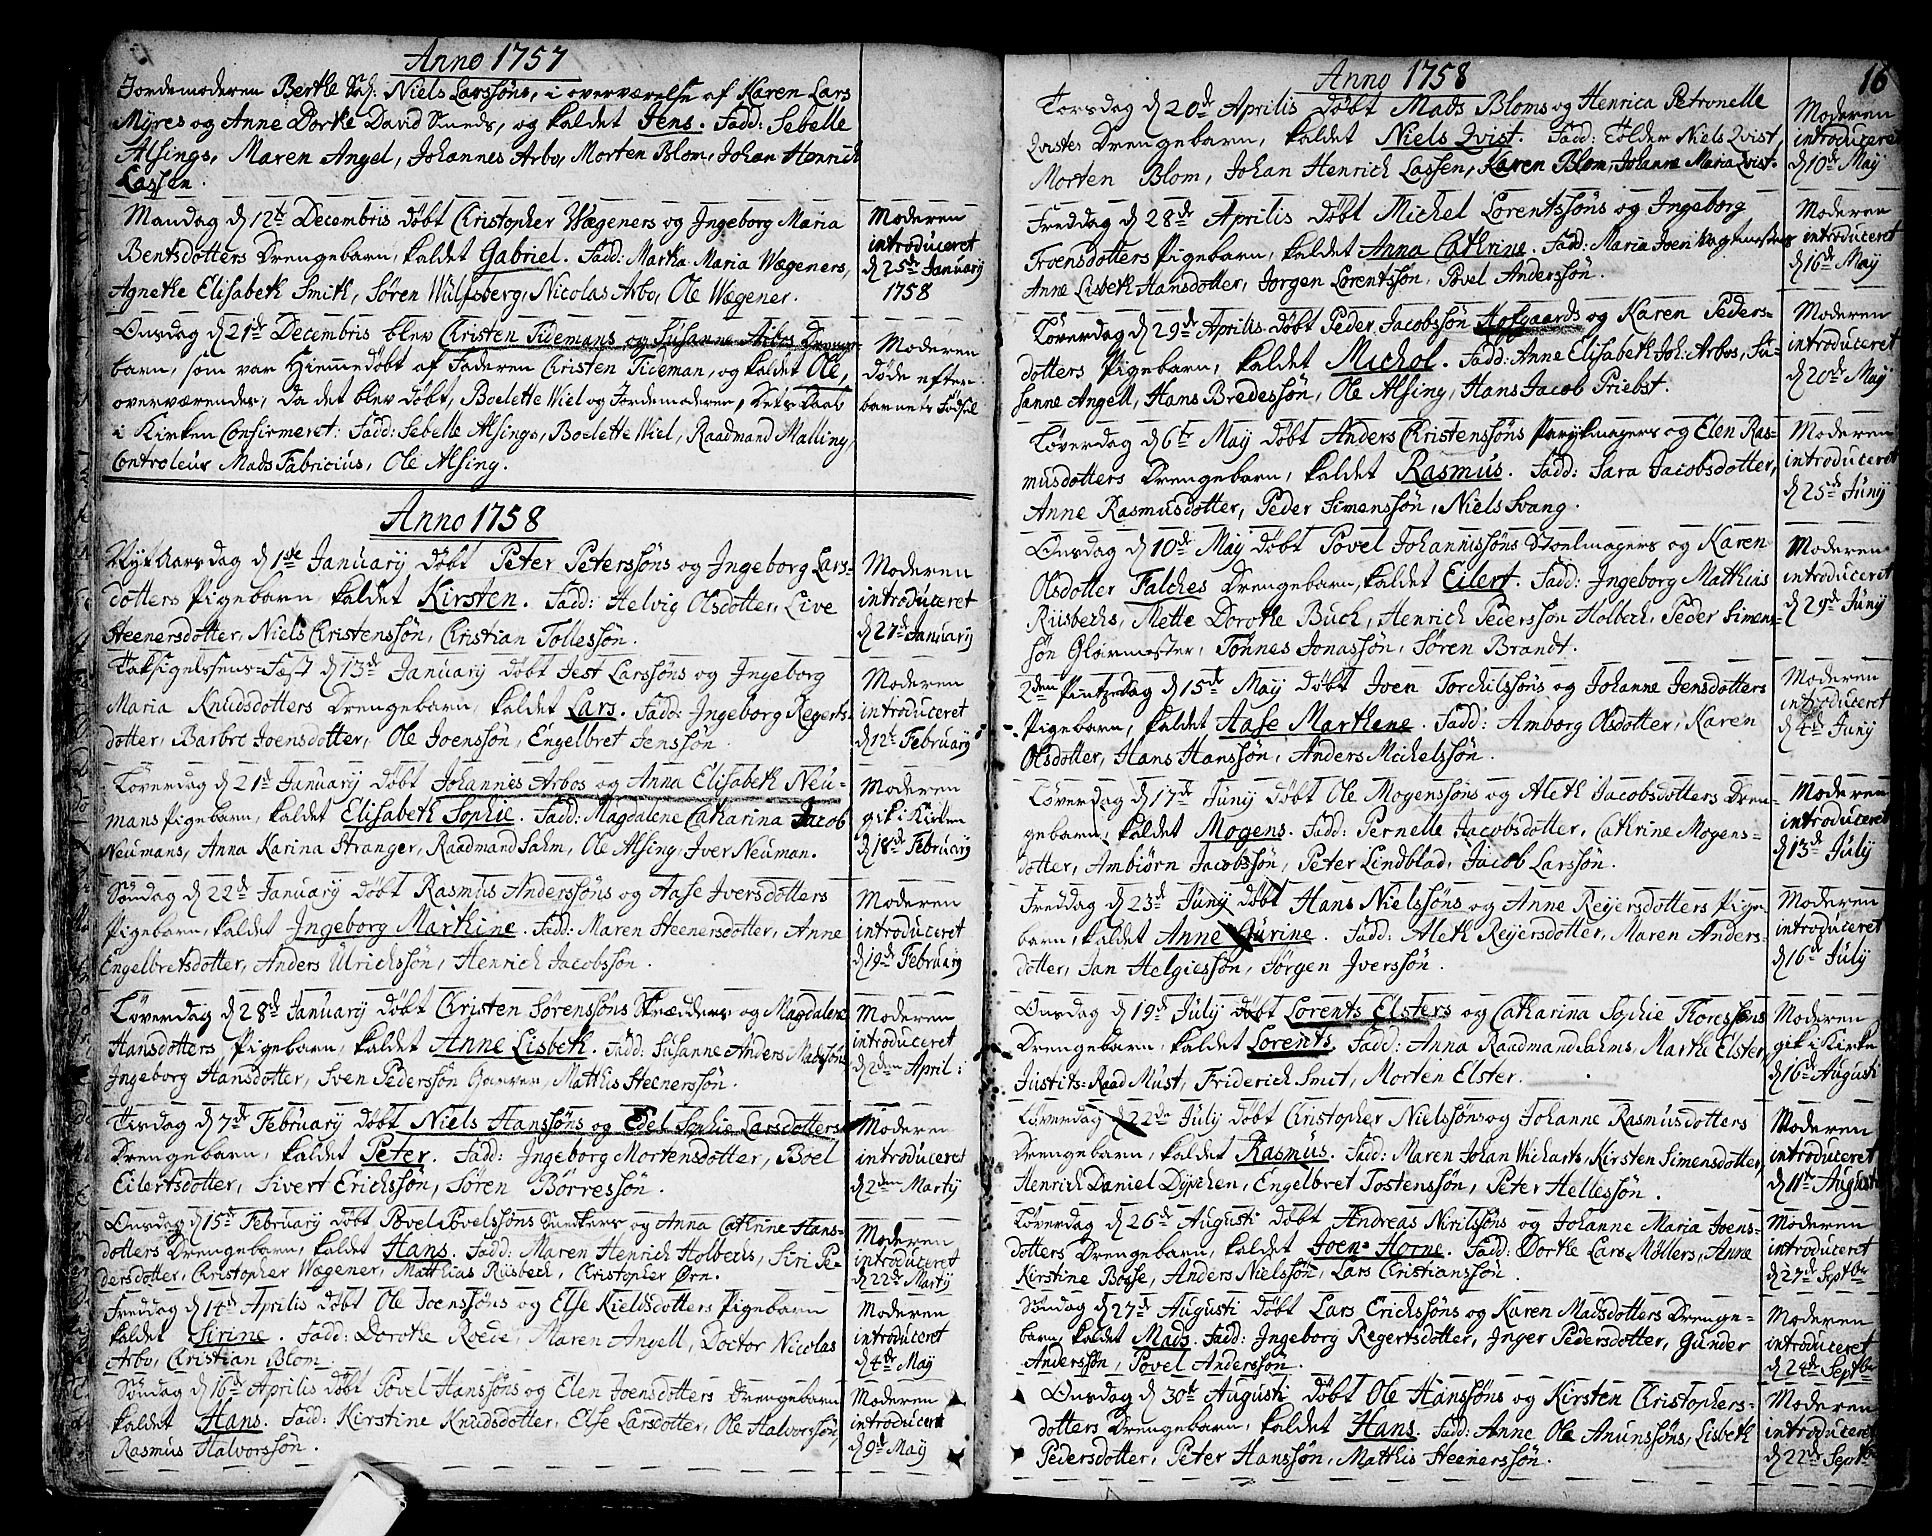 Anno 1757
Jordemoderen Berthe Sal: Niels Larssøns, i overværelse af Karen Lars
Myres og Anne Dorthe David Smeds, og kaldet Jens. Fadd: Sebelle
Alsings, Maren Angel, Johannes Arbo, Morten Blom, Johan Henrich
Lassen.
Mandag d 12te Decembris døbt Christopher Wægeners og Ingeborg Maria
Bentsdotters Drengebarn, kaldet Gabriel. Fadd: Martha Maria Wægeners,
Agnethe Elisabeth Smith, Søren Wulfsberg, Nicolas Arbo, Ole Wægener.
Moderen
introduceret
d 25de January
1758
Onsdag d 21de Decembris blev Christen Tidemans og Susanne Arbos Drenge-
barn, som var Hiemmedøbt af Faderen Christen Tideman, og kaldet Ole,
overværendes, da det blev døbt, Boelette Wiel og Jordemoderen, dets Daab
i Kirken Confirmeret: Fadd: Sebelle Alsings, Boelette Wiel, Raadmand Malling,
Controleur Mads Fabricius, Ole Alsing.
Moderen
døde efter
barnets Fødsel
Anno 1758
Nyt Aarsdag d 1ste January døbt Peter Peterssøns og Ingeborg Lars-
dotters Pigebarn, kaldet Kirsten. Fadd: Helvig Olsdotter, Live
Steenersdotter, Niels Christenssøn, Christian Tollessøn.
Moderen
introduceret
d 27de January
Taksigelsens-Fest d 13de January døbt Jest Larssøns og Ingeborg
Maria Knudsdotters Drengebarn, kaldet Lars. Fadd: Ingeborg Regerts-
dotter, Barbro Joensdotter, Ole Joenssøn, Engelbret Jenssøn.
Moderen
introduceret
d 12te February
Løverdag d 21de January døbt Johannes Arbos og Anna Elisabeth Neu-
mans Pigebarn, kaldet Elisabeth Sophie. Fadd: Magdalene Catharina Jacob
Neumans, Anna Karina Stranger, Raadmand Sahm, Ole Alsing, Iver Neuman.
Moderen
gik i Kirken
d 18de February
Søndag d 22de January døbt Rasmus Anderssøns og Aase Iversdotters
Pigebarn, kaldet Ingeborg Marthine. Fadd: Maren Steenersdotter, Anne
Engelbretsdotter, Anders Ulrichssøn, Henrich Jacobssøn.
Moderen
introduceret
d 19de February
Løverdag d 28de January døbt Christen Sørenssøns Skrædders og Magdalene
Hansdotters Pigebarn, kaldet Anne Lisbeth. Fadd: Susanne Anders Madssøns,
Ingeborg Hansdotter, Sven Pederssøn Garver, Matthis Steenerssøn.
Moderen
introduceret
d 2den April:
Tirsdag d 7de February døbt Niels Hanssøns og Edel Sophie Larsdotters
Drengebarn, kaldet Peter. Fadd: Ingeborg Mortensdotter, Boel
Eilertsdotter, Sivert Erichssøn, Søren Børressøn.
Moderen
introduceret
d 2den Marty
Onsdag d 15de February døbt Povel Povelssøns Snedkers og Anna Cathrine Hans-
dotters Drengebarn, kaldet Hans. Fadd: Maren Henrich Holbechs, Siri Pe-
dersdotter, Christopher Wægener, Matthias Riisbech, Christopher Ørn.
Moderen
introduceret
d 22de Marty
Freddag d 14de Aprilis døbt Ole Joenssøns og Else Kieldsdotters Pigebarn
kaldet Sirine. Fadd: Dorothe Roede, Maren Angell, Doctor Nicolas
Arbo, Christian Blom
Moderen
introduceret
d 4de May
Søndag d 16de Aprilis døbt Povel Hanssøns og Elen Joensdotters Drengebarn
kaldet Hans. Fadd: Kirstine Knudsdotter, Else Larsdotter, Ole Halvorssøn,
Rasmus Halvorssøn.
Moderen
introduceret
d 9de May
16
Anno 1758
Torsdag d 20de Aprilis døbt Mads Bloms og Henrica Petronelle
Qvistes Drengebarn, kaldet Niels Qvist. Fadd: Tolder Niels Qvist,
Morten Blom, Johan Henrich Lassen, Karen Blom, Johanne Maria Qvist.
Moderen
introduceret
d 10de May
Freddag d 28de Aprilis døbt Michel Lorentssøns og Ingeborg
Troensdotters Pigebarn, kaldet Anna Cathrine. Fadd: Maria Joen Vagtmesters
Anne Lisbeth Hansdotter, Jørgen Lorentssøn, Povel Anderssøn.
Moderen
introduceret
d 16de May
Løverdag d 29de Aprilis døbt Peder Jacobssøn Hofgaards og Karen Peders-
dotters Pigebarn, kaldet Michol. Fadd: Anne Elisabeth Joh: Arbos, Su-
sanne Angell, Hans Bredessøn, Ole Alsing, Hans Jacob Priebst.
Moderen
introduceret
d 20de May
Løverdag d 6te May døbt Anders Christenssøns Parykmagers og Elen Ras-
musdotters Drengebarn, kaldet Rasmus. Fadd: Sara Jacobsdotter,
Anne Rasmusdotter, Peder Simenssøn, Niels Svang.
Moderen
introduceret
d 25de Juny
Onsdag d 10de May døbt Povel Johannissøns Stoelmagers og Karen
Olsdotter Falches Drengebarn, kaldet Eilert. Fadd: Ingeborg Matthias
Riisbechs, Mette Dorothe Buch, Henrich Pederssøn Holbech, Peder Simens-
søn Glarmester, Tønnes Jonassøn, Søren Brandt.
Moderen
introduceret
d 29de Juny
2den Pintzedag d 15de May døbt Joen Torchilssøns og Johanne Jensdotters
Pigebarn, kaldet Aase Marthene. Fadd: Amborg Olsdotter, Karen
Olsdotter, Hans Hanssøn, Anders Michelssøn.
Moderen
introduceret
d 4de Juny
Løverdag d 17de Juny døbt Ole Mogenssøns og Aleth Jacobsdotters Dren-
gebarn, kaldet Mogens. Fadd: Pernelle Jacobsdotter, Cathrine Mogens-
dotter, Ambiørn Jacobssøn, Peter Lindblad, Jacob Larssøn.
Moderen
introduceret
d 13de July
Freddag d 23de Juny døbt Hans Nielssøns og Anne Reyersdotters Pige-
barn, kaldet Anne Gurine. Fadd: Aleth Reyersdotter, Maren Anders-
dotter, Jan Helgiessøn, Jørgen Iverssøn.
Moderen
introduceret
d 16de July
Onsdag d 19de July døbt Lorents Elsters og Catharina Sophie Thoressøns
Drengebarn, kaldet Lorents. Fadd: Anna Raadmand Sahms, Marthe Elster,
Justits-Raad Must, Friderich Smit, Morten Elster.
Moderen
gik i Kirke
d 16de Augusti
Løverdag d 22de July døbt Christopher Nielssøns og Johanne Rasmusdotters
Drengebarn, kaldet Rasmus. Fadd: Maren Johan Wicharts, Kirsten Simensdotter,
Henrich Daniel Dypchen, Engelbret Tostenssøn, Peter Hellessøn.
Moderen
introduceret
d 11te Augusti
Løverdag d 26de Augusti døbt Andreas Nirilssøns og Johanne Maria Joens-
dotters Drengebarn, kaldet Joen Horne. Fadd: Dorthe Lars Møllers, Anne
Kirstine Bosse, Anders Nielssøn, Lars Christianssøn.
Moderen
introduceret
d 27de Septbr
Søndag d 27de Augusti døbt Lars Erichssøns og Karen Madsdotters Drenge-
barn, kaldet Mads. Fadd: Ingeborg Regertsdotter, Inger Pedersdotter, Gunder
Anderssøn, Povel Anderssøn.
Moderen
introduceret
d 24de Septbr
Onsdag d 30te Augusti døbt Ole Hanssøns og Kirsten Christophers-
dotters Drengebarn, kaldet Hans. Fadd: Anne Ole Anunssøns, Lisbeth
Pedersdotter, Peter Hanssøn, Matthis Steenerssøn.
Moderen
introduceret
d 22de Septbr